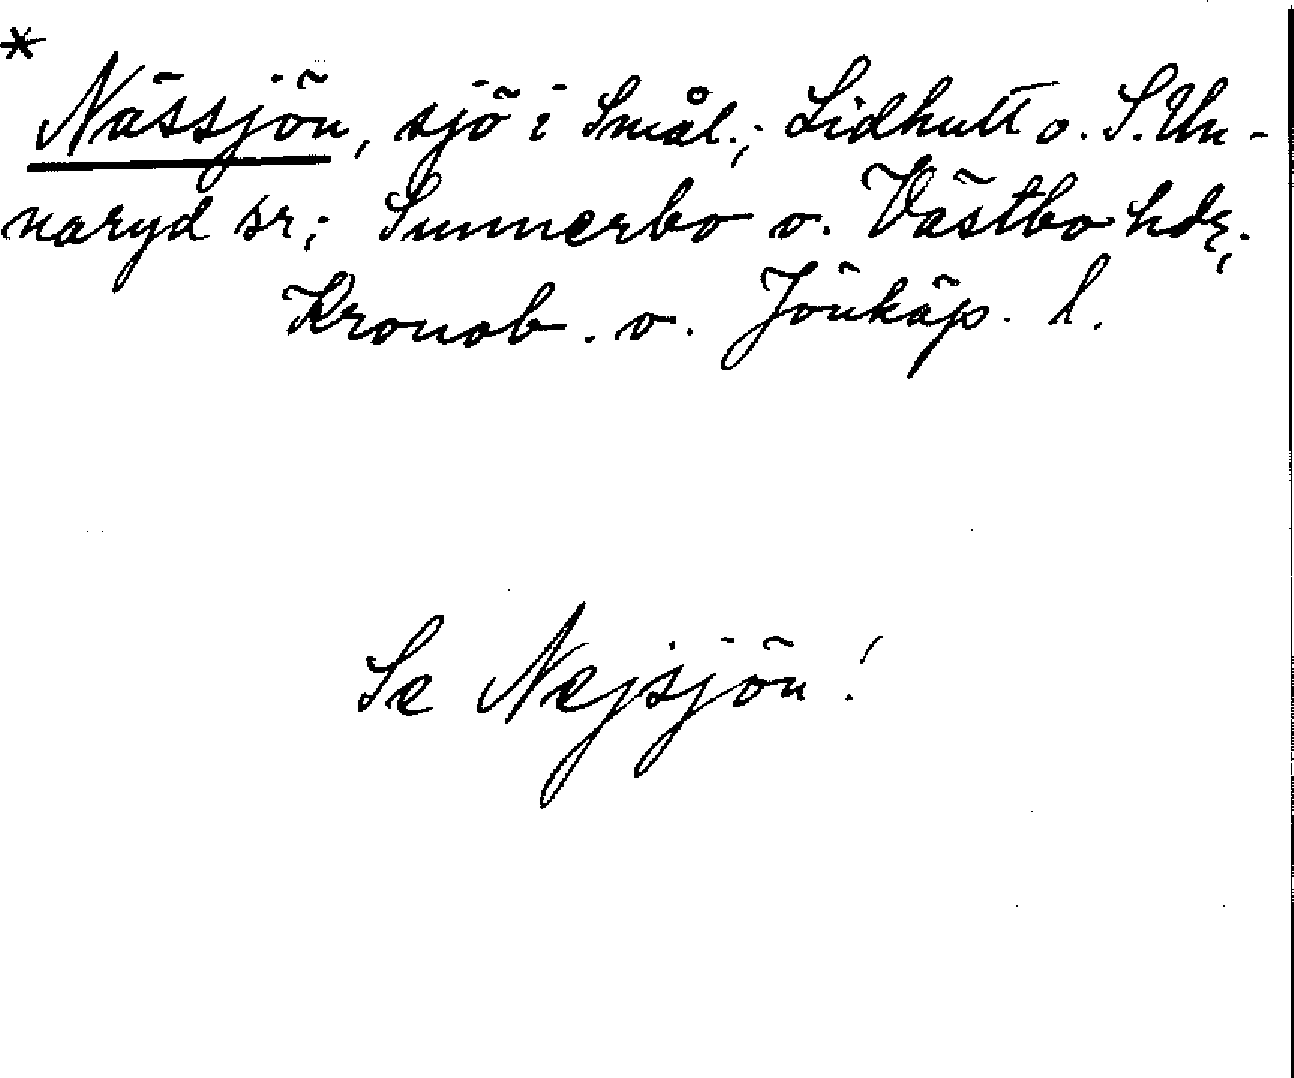 *
Nässjön, sjö i Smål.; Lidhult o. S. Un-
naryd sr; Sunnerbo o. Västbo hdr,
Kronob. o. Jönköp. l.
Se Nejsjön!